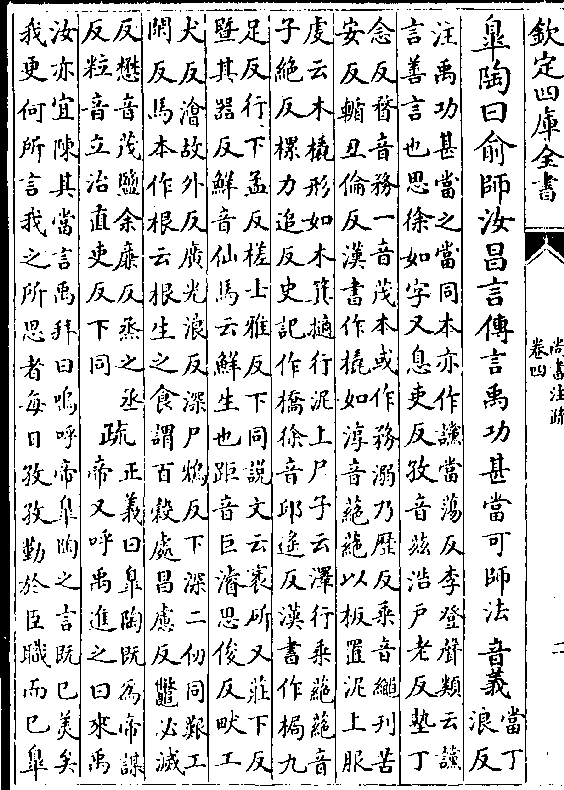 欽定四庫全書
尚書注疏
卷四
臯陶曰俞師汝昌言傳言禹功甚當可師法音義當丁
浪反
注禹功甚當之當同本亦作讜當蕩反李登聲類云讜
言善言也思徐如字又息吏反孜音玆浩户老反墊丁
念反瞀音務一音茂本或作務溺乃歷反乘音繩刋苦
安反輴丑倫反漢書作橇如淳音蕝蕝以板置泥上服
虔云木橇形如木箕擿行泥上尸子云澤行乘蕝蕝音
子絶反樏力追反史記作橋徐音邱遥反漢書作梮九
足反行下孟反槎士雅反下同說文云裹斫又莊下反
暨其器反鮮音仙馬云鮮生也距音巨濬思俊反畎工
犬反澮故外反廣光浪反深尸鴆反下深二仞同艱工
閑反馬本作根云根生之食謂百穀處昌慮反鼈必滅
反懋音茂鹽余廉反烝之丞
反粒音立治直吏反下同
疏
正義曰臯陶既為帝謀
帝又呼禹進之曰來禹
汝亦宜陳其當言禹拜曰嗚呼帝臯陶之言既已美矣
我更何所言我之所思者每日孜孜勤於臣職而已臯